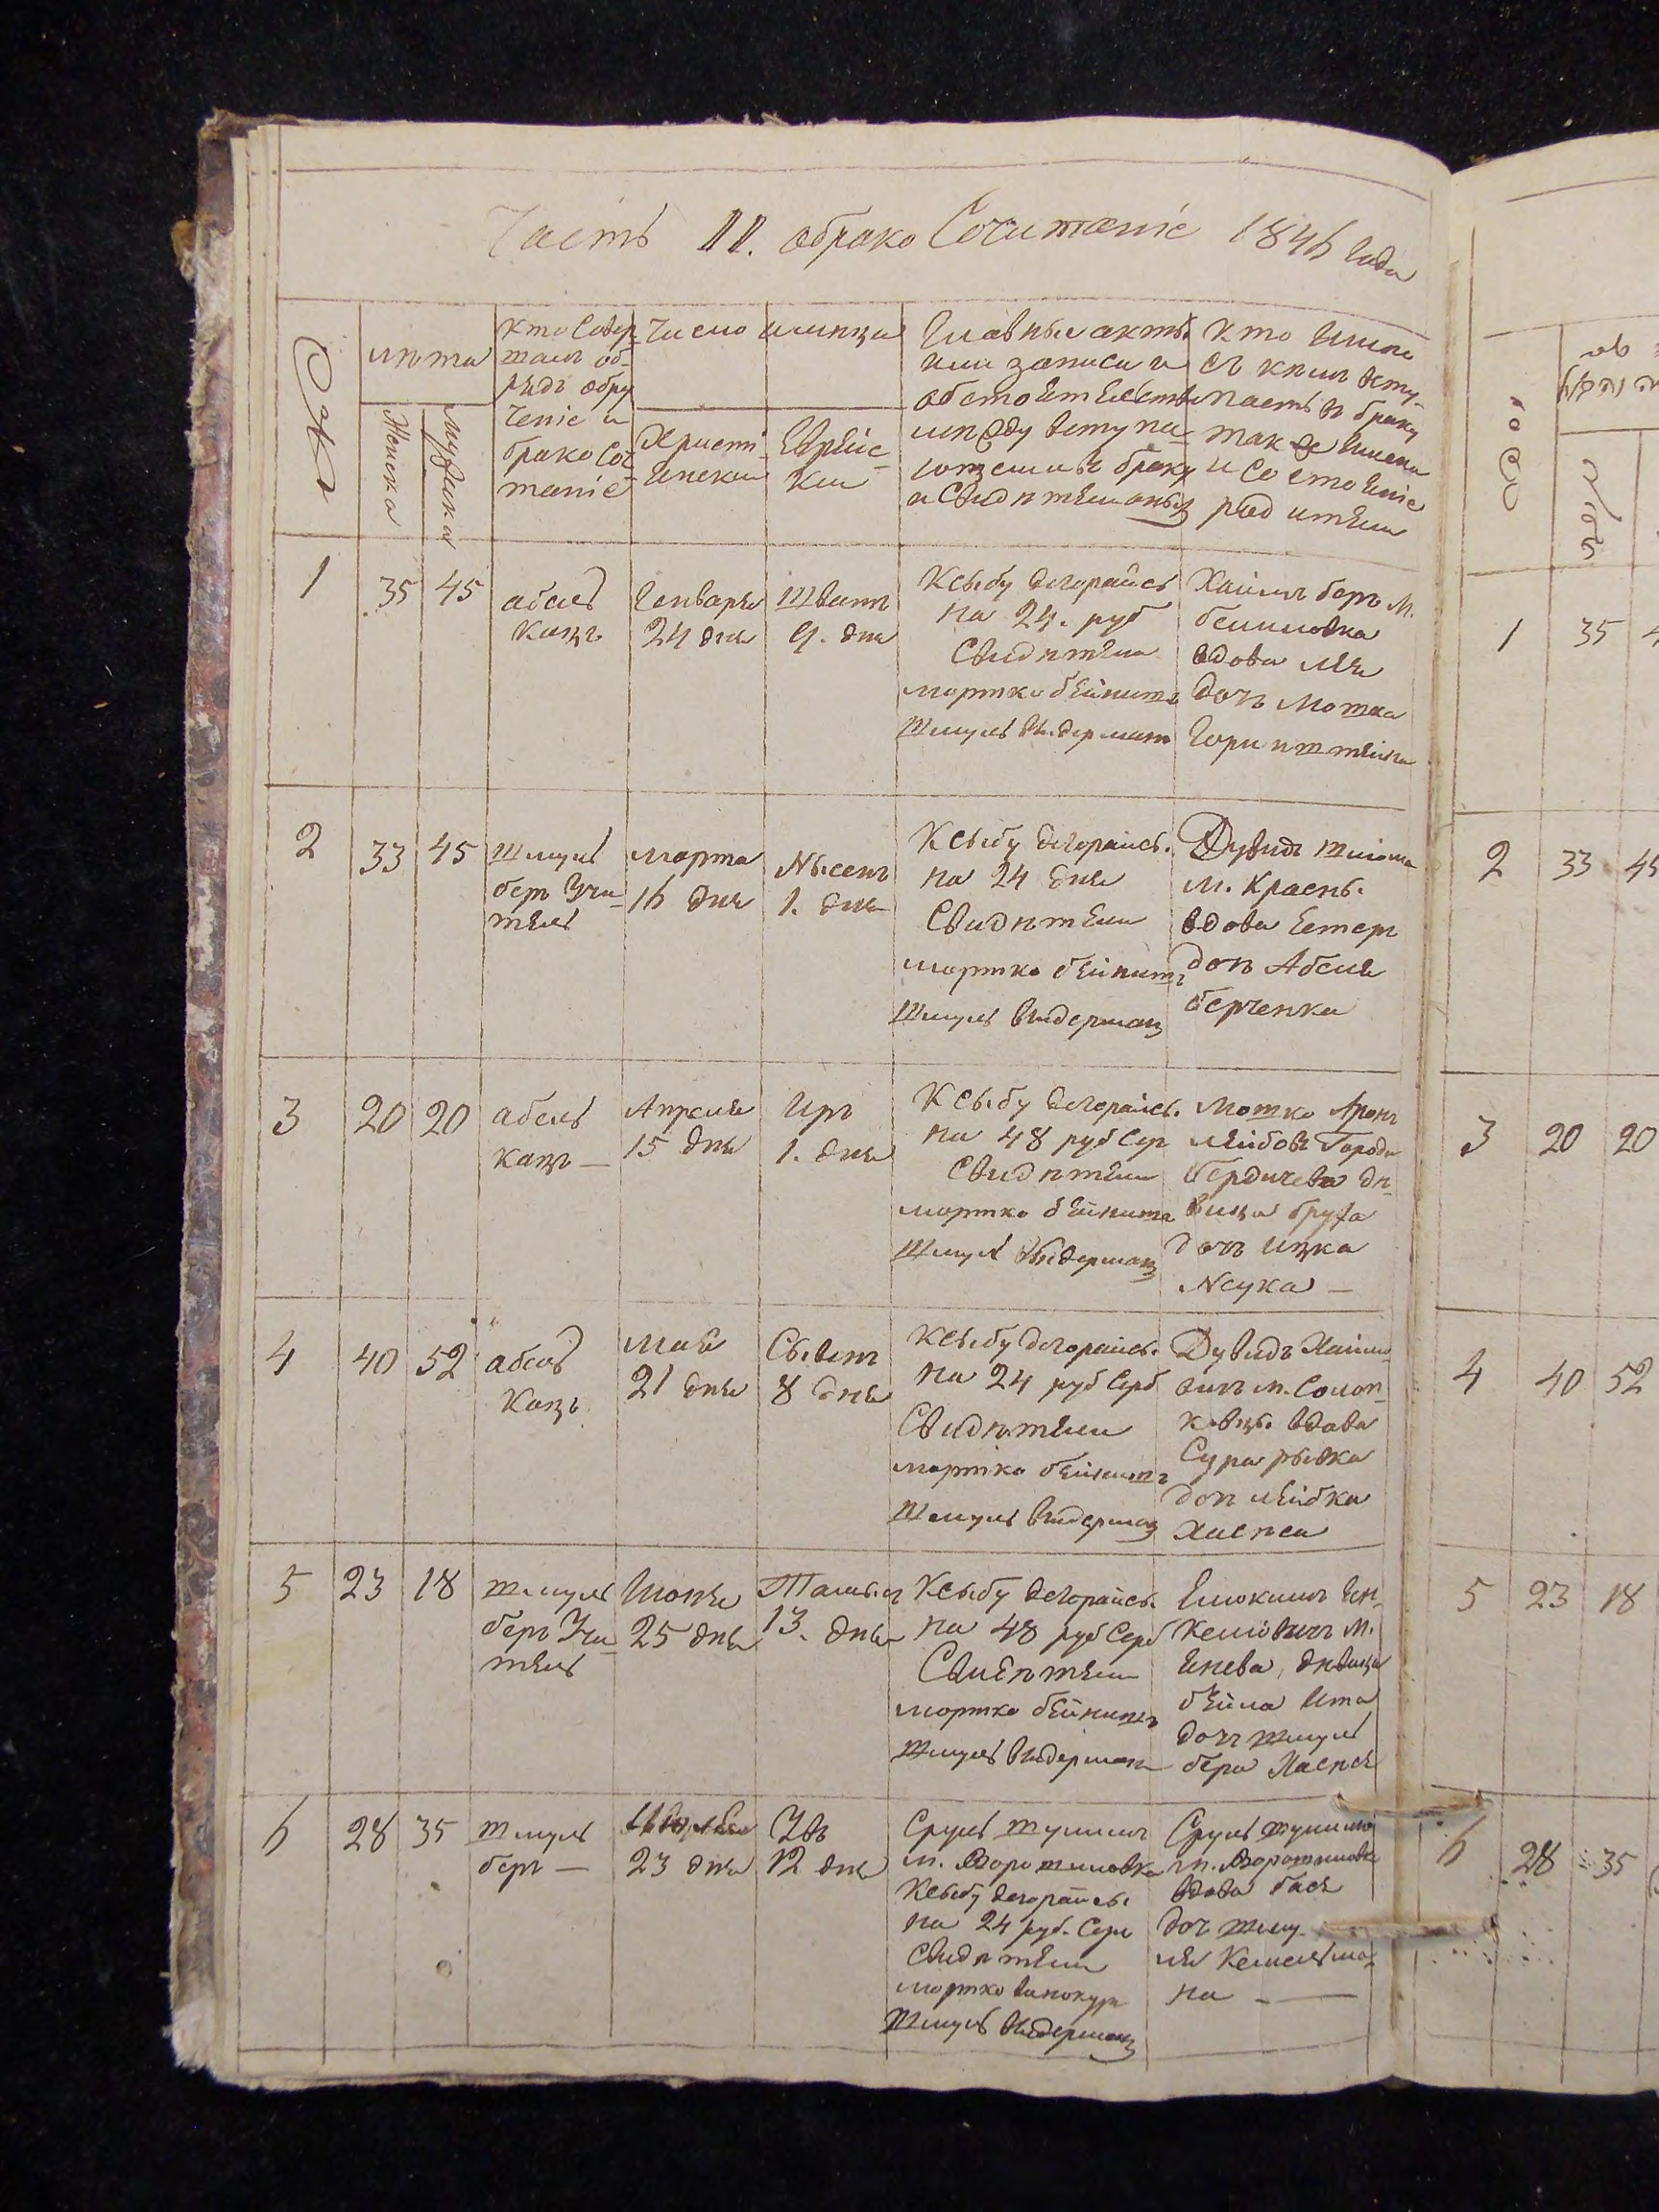 Часть II. о брако Сочитание 1846 года
лѣта
Женска
Мужска
Кто Совер
шалъ об-
рядъ обру
чение и
брако Соч
тание
Число и мѣсяцъ
Христі-
Еврейс-
кии
Главные акты
или записи и
обстоятелства
между вступа-
ющеми в браку
и Свидѣтели оных
Кто имено
съ кѣмъ всту-
паетъ в браку
также имена
и Состоение
родители
1
35
45
абель
Кацъ
Генваря
24 дня
Шватъ
9. дня
Ксыбу дегорайсь
на 24. руб
Свидѣтели
мортко бейнишъ
Шмуль Видерманъ
Хаимъ беръ м.
вдова Лея
дочь Мотка
2
33
45
Шмуль
беръ Учи-
тель
Марта
16 дня
Нысенъ
1. дня
Ксыбу дегорайсь.
на 24 дня
Свидѣтели
мортко бейнишъ
Шмуль Видерманъ
Дувидъ
м. Краснъ.
вдова Естеръ
дочь Абеля
берченка
3
20
20
абель
кацъ —
Апреля
15 дня
Иръ
1. дня
Ксыбу дегорайсь.
на 48 руб Сер
Свидѣтели
мортко бейнишъ
Шмуль Видерманъ
Мотко Аронъ
Лейбовъ Города
Бердичева дѣ-
вица бруха
дочь ицка
—
4
40
52
абель
Кацъ
Мая
21 дня
Сыванъ
8 дня
Ксыбу дегорайсь.
на 24 руб Серб
Свидѣтели
мортко бейнишъ
Шмуль Видерманъ
Дувидъ Хаимо-
вичъ м. Солоп-
вдова
Сура рывка
дочь лейбка
5
23
18
Шмуль
беръ Учи-
тель
Июня
25 дня
Тамызъ
13. дня
Ксыбу дегорайсь.
на 48 руб Серб
Свидѣтели
мортко бейнишъ
Шмуль Видерманъ
м.
дѣвица
бейла Ита
дочь Шмуль
бера
6
28
35
Шмуль
беръ —
23 дня
12 дня
Сруль
м. Ворошиловка
Ксыбу дегорайсь
на 24 руб. Сер
Свидѣтели
мортко винокуръ
Шмуль Видерманъ
Сруль
м. Ворошиловка
вдова бася
доч Шму-
ля Кесельма-
на —
1
35
2
33
45
3
20
20
4
40
52
5
23
18
6
28
35